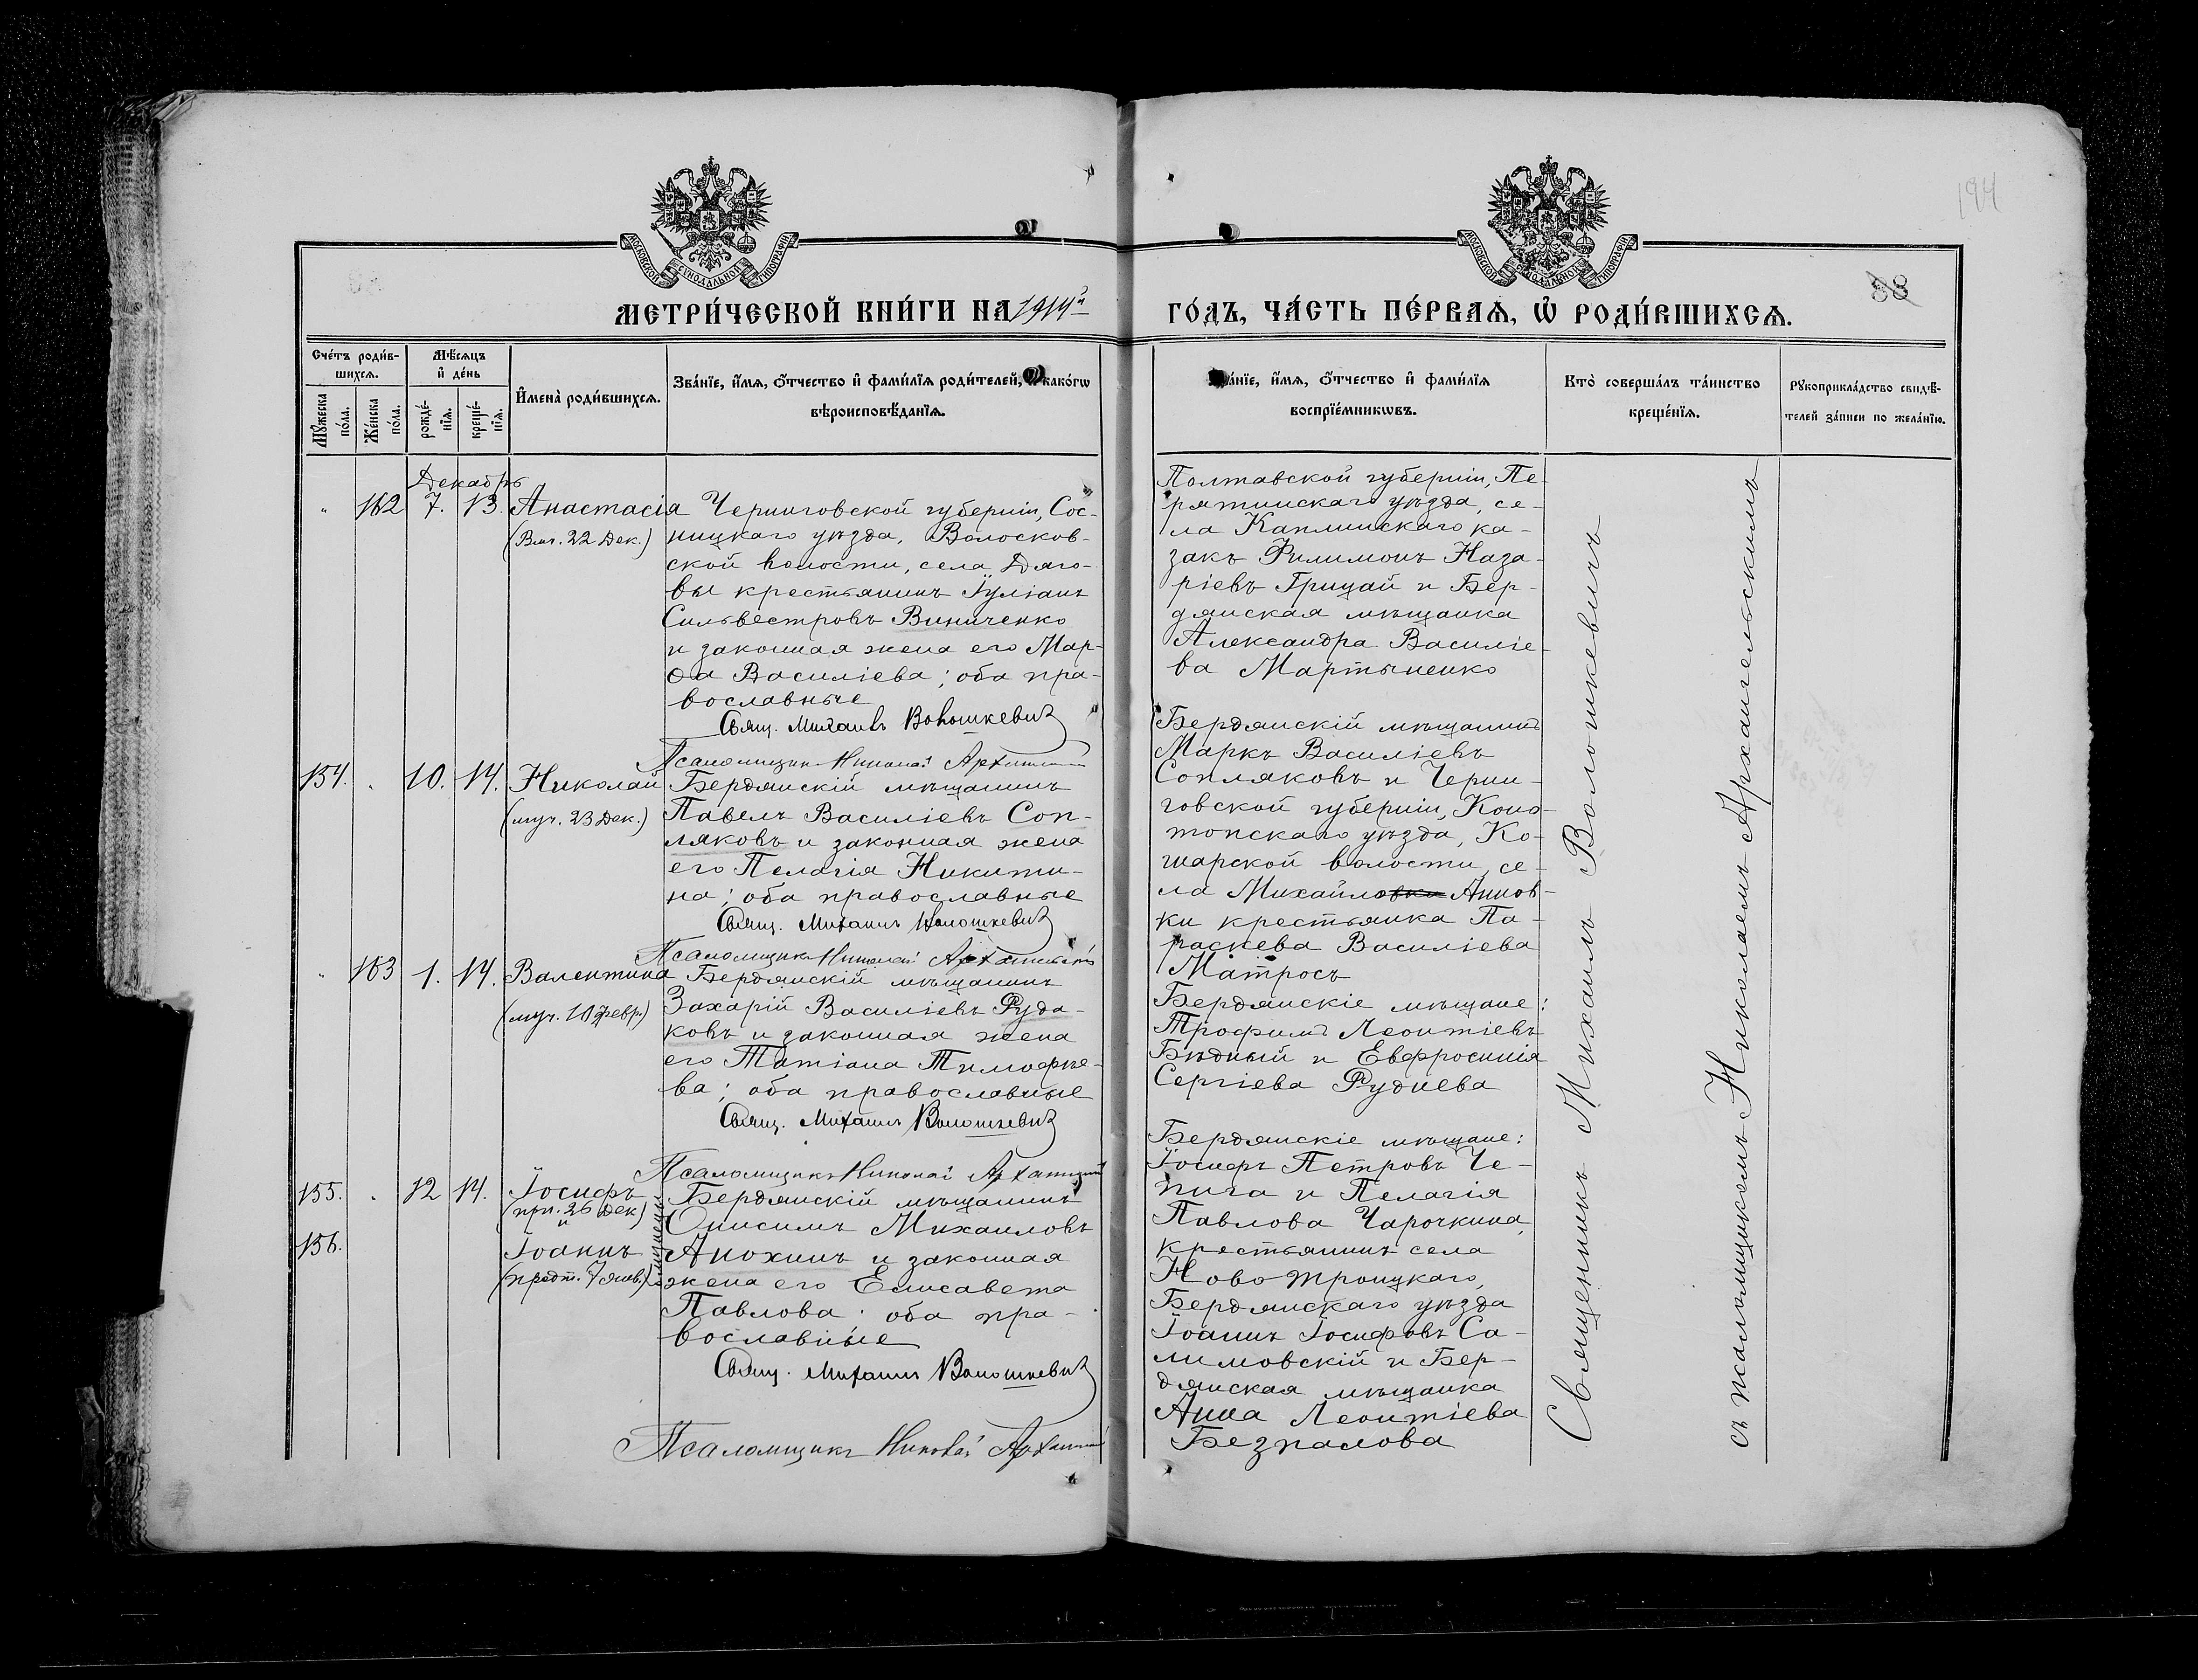 194
МОСКОВСКОЙ СѴНОДАЛЬНОЙ ТИПОГРАФІИ
МОСКОВСКОЙ СѴНОДАЛЬНОЙ ТИПОГРАФІИ
МЕТРИ́ЧЕСКОЙ КНИ́ГИ НА 1914й
ГО́ДЪ, ЧА́СТЬ ПЕ́РВАѦ, Ѡ҆ РОДИ́ВШИХСѦ.
88
Счє́тъ роди́в-
шихсѧ.
Мѣ́сѧцъ
и҆ дє́нь
Мꙋ́жєска по́ла.
Жє́нска по́ла.
рождє́-
нїѧ.
крєщє́-
нїѧ.
И҆мєна̀ роди́вшихсѧ.
Зва́нїє, и҆́мѧ, ѻ҆́тчєство и҆ фами́лїѧ роди́тєлєй, и҆ како́гѡ
вѣроисповѣ́данїѧ.
Зва́нїє, и҆́мѧ, ѻ҆́тчєство и҆ фами́лїѧ
воспрїє́мникѡвъ.
Кто̀ совєрша́лъ та́инство
крєщє́нїѧ.
Рꙋкоприкла́дство свидѣ́-
тєлєй за́писи по жєла́нїю.
Декабрь
" 182 7. 13. Анастасія
(Вмч. 22 Дек.)
Черниговской губерніи, Сос-
ницкаго уѣзда, Волосков-
ской волости, села Дяго-
вы крестьянинъ Іуліанъ
Сильвестровъ Виниченко
и законная жена его Мар-
ѳа Василіева; оба пра-
вославные
Свящ. Михаилъ Волошкевич
Псаломщикъ Николай
Полтавской губерніи, Пе-
рятинскаго уѣзда, се-
ла Каплинскаго ка-
закъ Филимонъ Наза-
ріевъ Грицай и Бер-
дянская мѣщанка
Александра Василіе-
ва Мартыненко
154. " 10. 14. Николай
(муч. 23 Дек.)
Бердянскій мѣщанинъ
Павелъ Василіевъ Соп-
ляковъ и законная жена
его Пелагія Никити-
на; оба православные
Свящ. Михаилъ Волошкевич
Псаломщикъ Николай
Бердянскій мѣщанинъ
Маркъ Василіевъ
Сопляковъ и Черни-
говской губерніи, Коно-
топскаго уѣзда, Ко-
шарской волости, се-
ла Михайловки Аннов-
ки крестьянка Па-
раскева Василіева
Матросъ
" 183 1. 14. Валентина
(муч. 10 Февр.)
Бердянскій мѣщанинъ
Захарій Василіевъ Руда-
ковъ и законная жена
его Татіана Тимофѣе-
ва; оба православные
Свящ. Михаилъ Волошкевич
Псаломщикъ Николай
Бердянскіе мѣщане:
Трофимъ Леонтіевъ
Бѣдный и Евфросинія
Сергіева Руднева
155. " 12 14. Іосифъ
(прп. 26 Дек)
и
156. Іоаннъ
(предт. 7 янв.)
близнецы
Бердянскій мѣщанинъ
Онисимъ Михаиловъ
Анохинъ и законная
жена его Елисавета
Павлова; оба пра-
вославные
Свящ. Михаилъ Волошкевич
Псаломщикъ Николай
Бердянскіе мѣщане:
Іосифъ Петровъ Че-
пига и Пелагія
Павлова Чарочкина,
крестьянинъ села
Ново Троицкаго,
Бердянскаго уѣзда
Іоаннъ Іосифовъ Са-
лимовскій и Бер-
дянская мѣщанка
Анна Леонтіева
Безпалова
Священникъ Михаилъ Волошкевичъ
съ псаломщикомъ Николаемъ Архангельскимъ